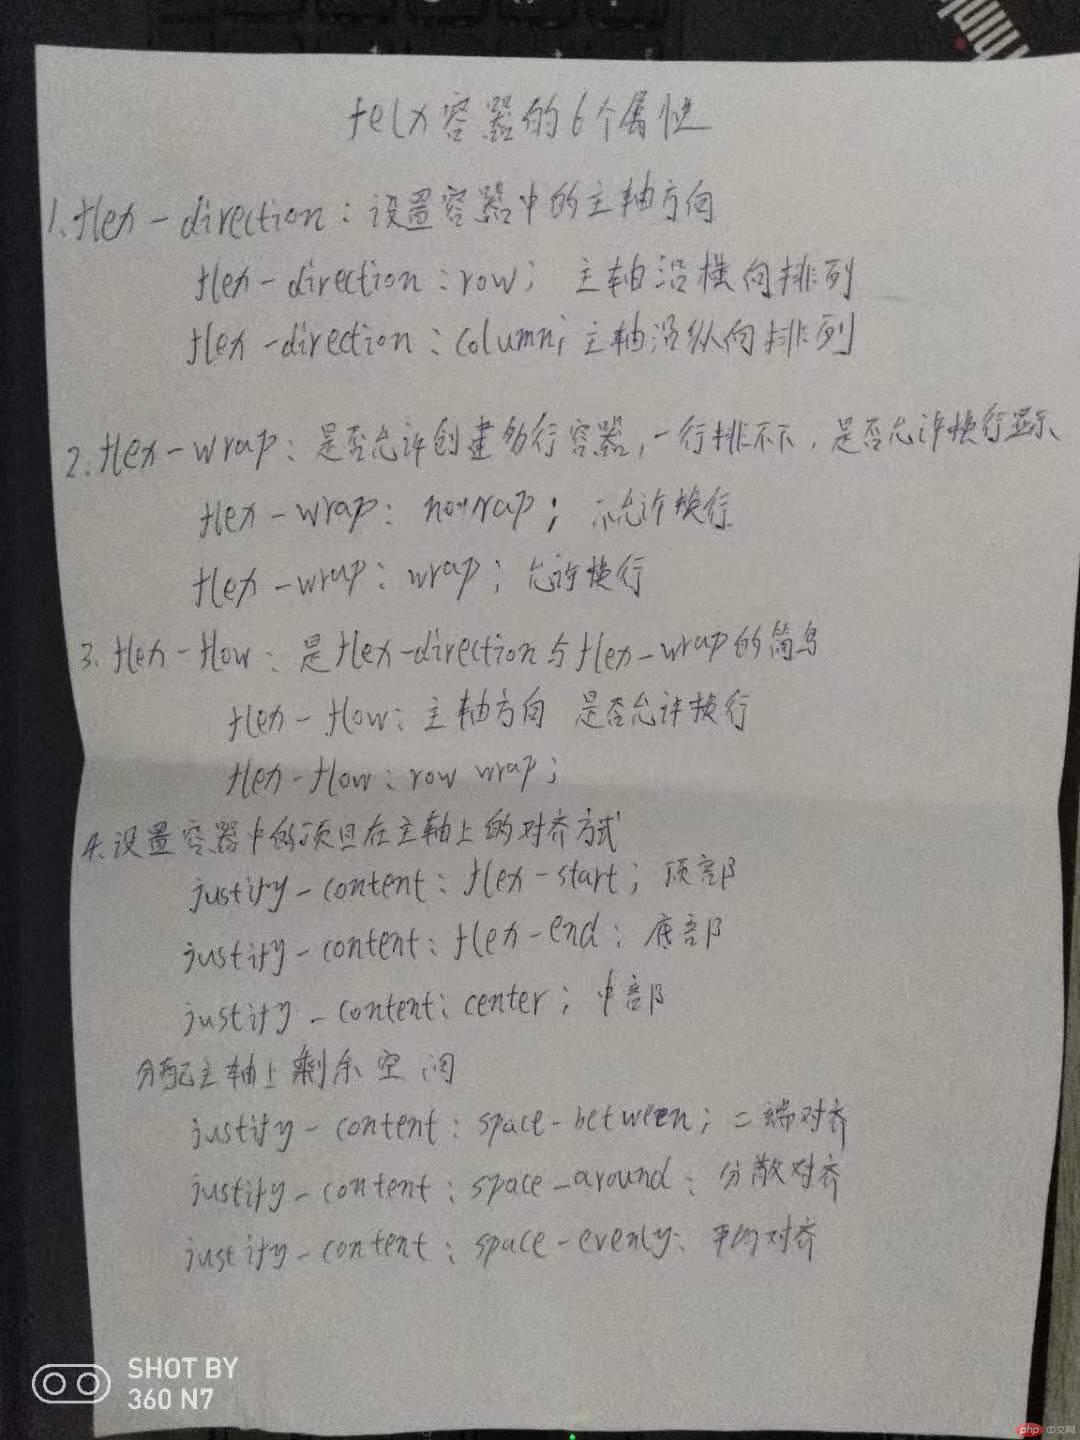 felx容器的6个属性
1.flex-direction:设置容器中的主轴方向
flex-direction:row; 主轴沿横向排列
flex-direction:column;主轴沿纵向排列
2.flex-wrap:是否允许创建多行容器,一行排不下,是否允许换行显示
flex-wrap:nowrap; 不允许换行
flex-wrap:wrap; 允许换行
3.flex-flow:是flex-direction与flex-wrap的简写
flex-flow:主轴方向 是否允许换行
flex-flow:row wrap;
4.设置容器中的项目在主轴上的对齐方式
justify-content:flex-start; 顶部
justify-content:flex-end: 底部
justify-content:center; 中部
分配主轴上剩余空间
justify-content:space-between; 二端对齐
justify-content:space-around: 分散对齐
justify-content:space-evenly: 平均对齐
SHOT BY
360 N7
php 中文网